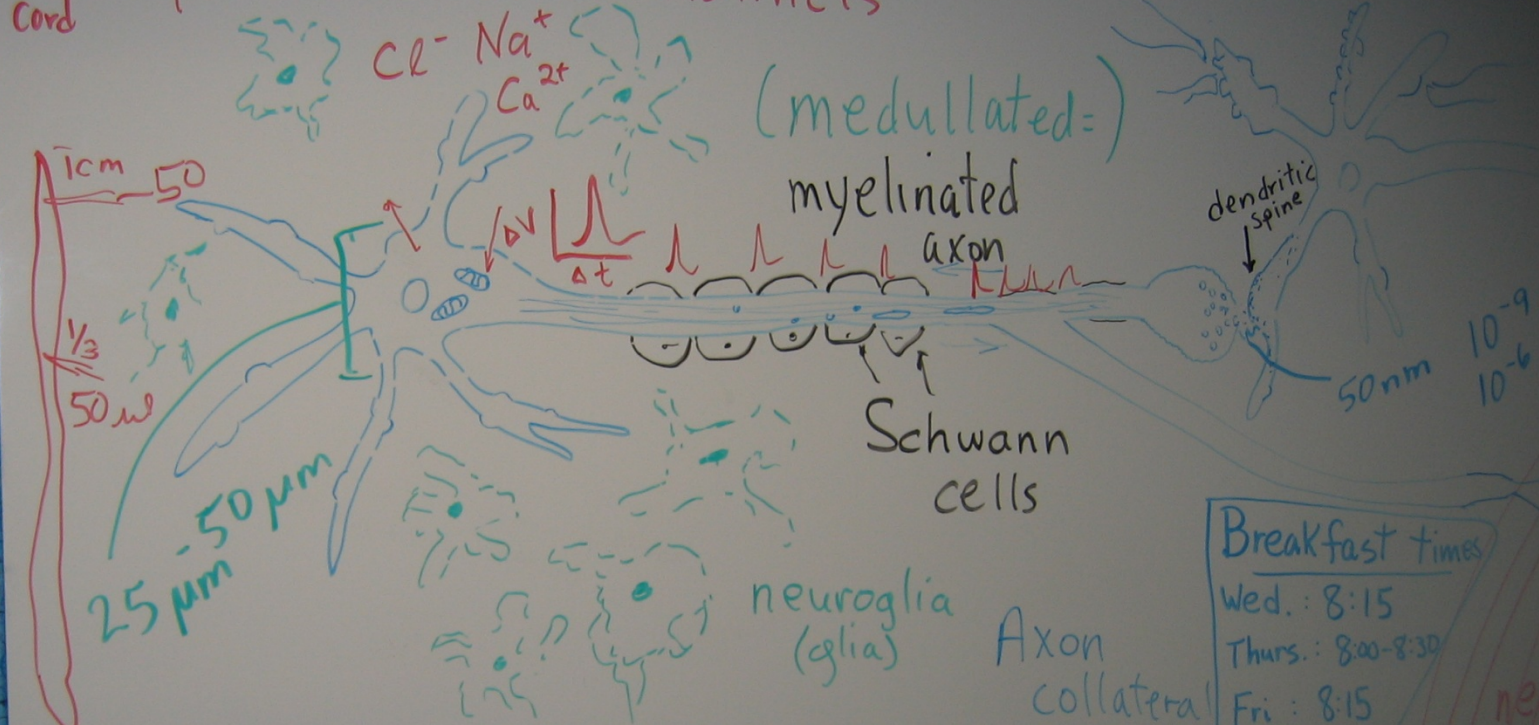 Cord
Cl⁻ Na⁺
Ca²⁺
(medullated=)
myelinated
axon
dendritic
spine
1cm
50
ΔV
Δt
1/3
50
10⁻⁹
10⁻⁶
50nm
Schwann
cells
25 μm - 50 μm
neuroglia
(glia)
Axon
collateral
Breakfast times
Wed. : 8:15
Thurs. : 8:00-8:30
Fri : 8:15
ne